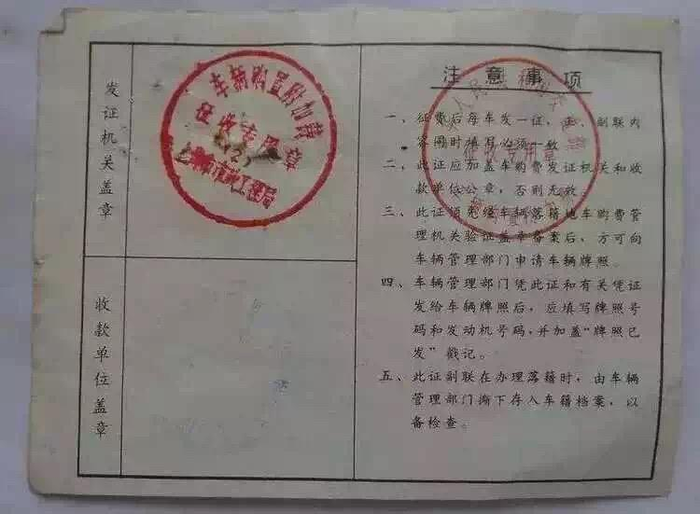 发证机关盖章
车辆购置附加费
征收专用章
收款单位盖章
注意事项
一、征费后每车发一证，正、副联内
容同时填写必须一致。
二、此证应加盖车购费发证机关和收
款单位公章，否则无效。
三、此证须先经车辆落籍地车购费管
理机关验证盖章备案后，方可向
车辆管理部门申请车辆牌照。
四、车辆管理部门凭此证和有关凭证
发给车辆牌照后，应填写牌照号
码和发动机号码，并加盖“牌照已
发”戳记。
五、此证副联在办理落籍时，由车辆
管理部门撕下存入车籍档案，以
备检查。